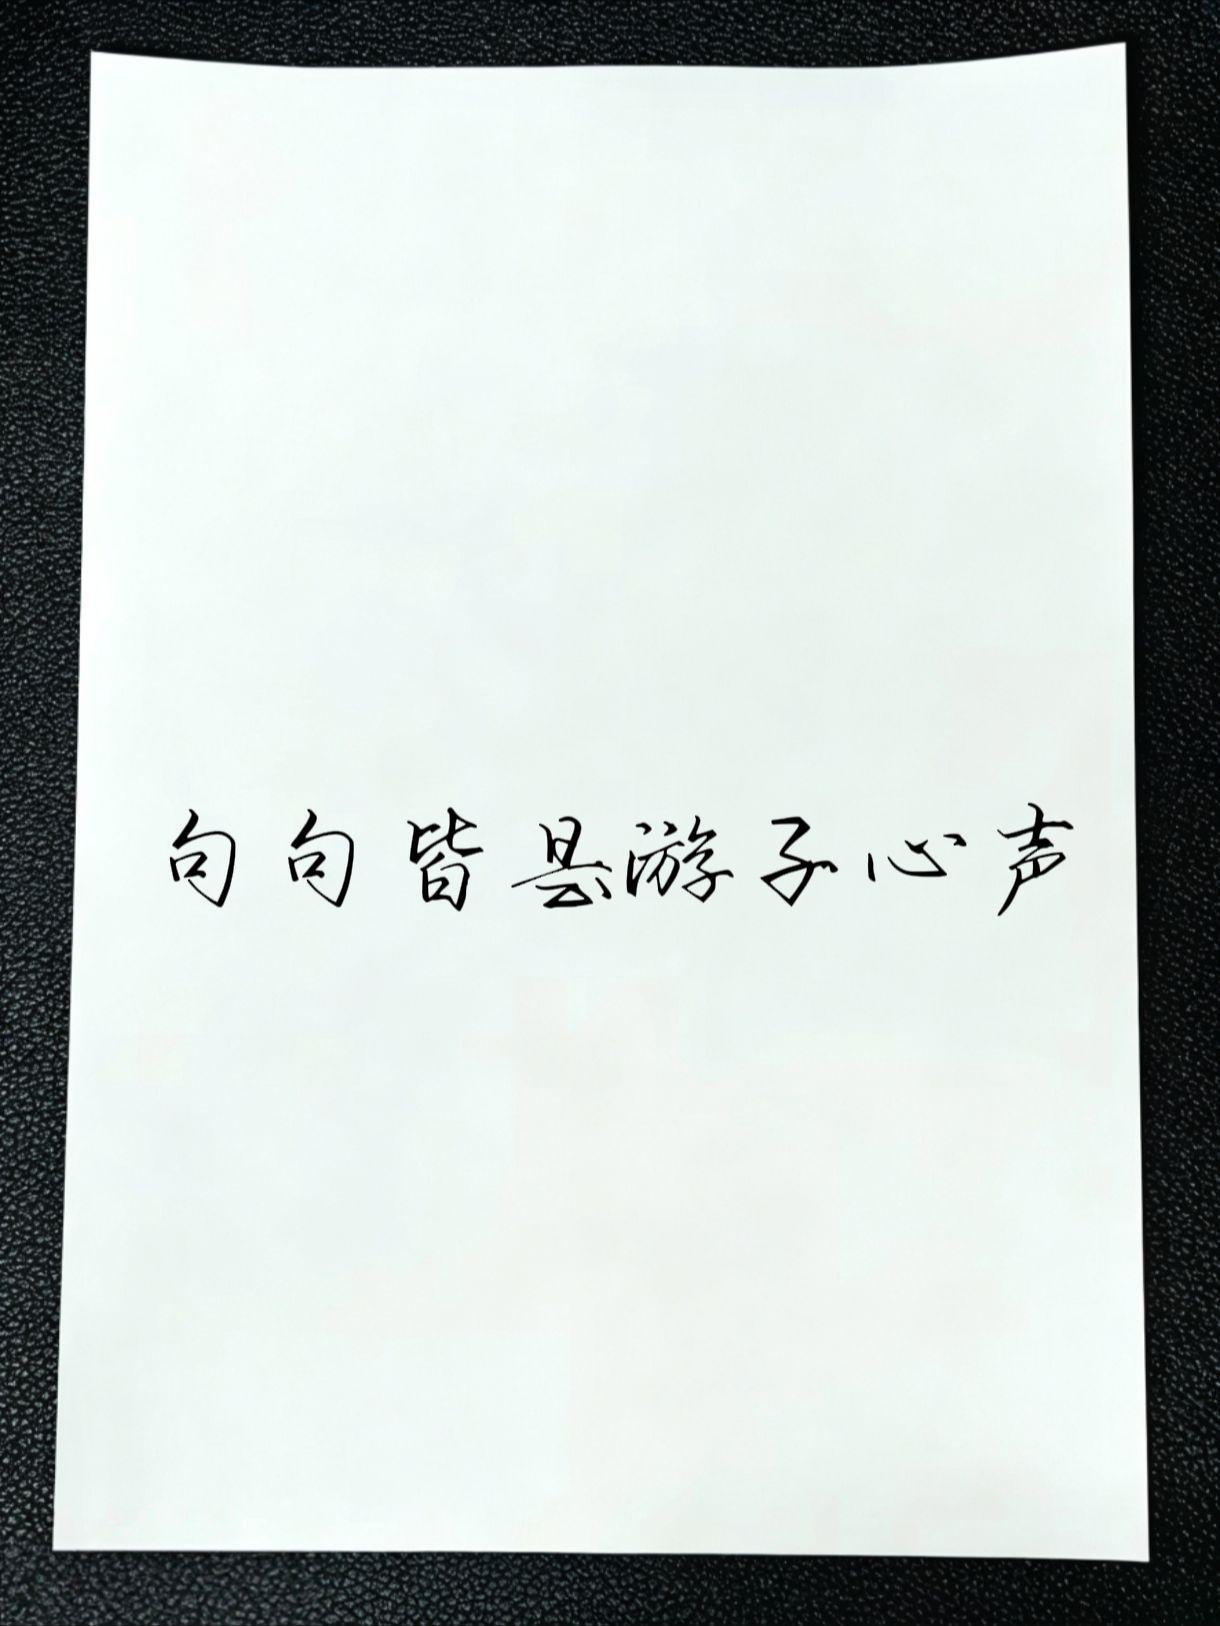 句句皆县游子心声